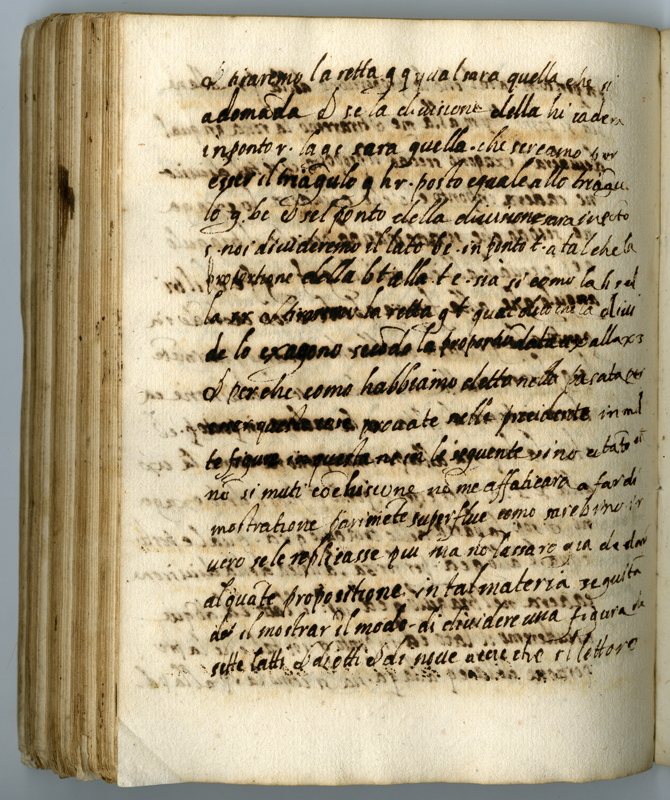 & tiraremo la retta g q qual sara quella che si
adomada & se la divisione della hi cadera
in ponto r. la g s sara quella. che sercamo per
esser il triãgulo g h r. posto equale allo triãgu
lo g. be & sel ponto della divisione sara in ponto
s. noi divideremo il lato be. in ponto t. a tal che la
proportione della b t alla t e. sia si como la h s al
la & tiraremo la retta g t. qual dico che la divi
de lo exagono secõdo la proportiõ data alla x z
& perche como habbiamo detto nella pasata
provate nelle precidente in mol
te figure in questa ne in le seguente vi no
nõ si muti cõclusione nõ me affaticaro a far di
mostratione parimẽte superflue como sarebino
vero se le replicasse piu ma nõ lassaro gia de dar
alquãte propositione in tal materia seguita
do il mostrar il modo di dividere una figura da
sette latti & di otti & di nove acio che il lettore